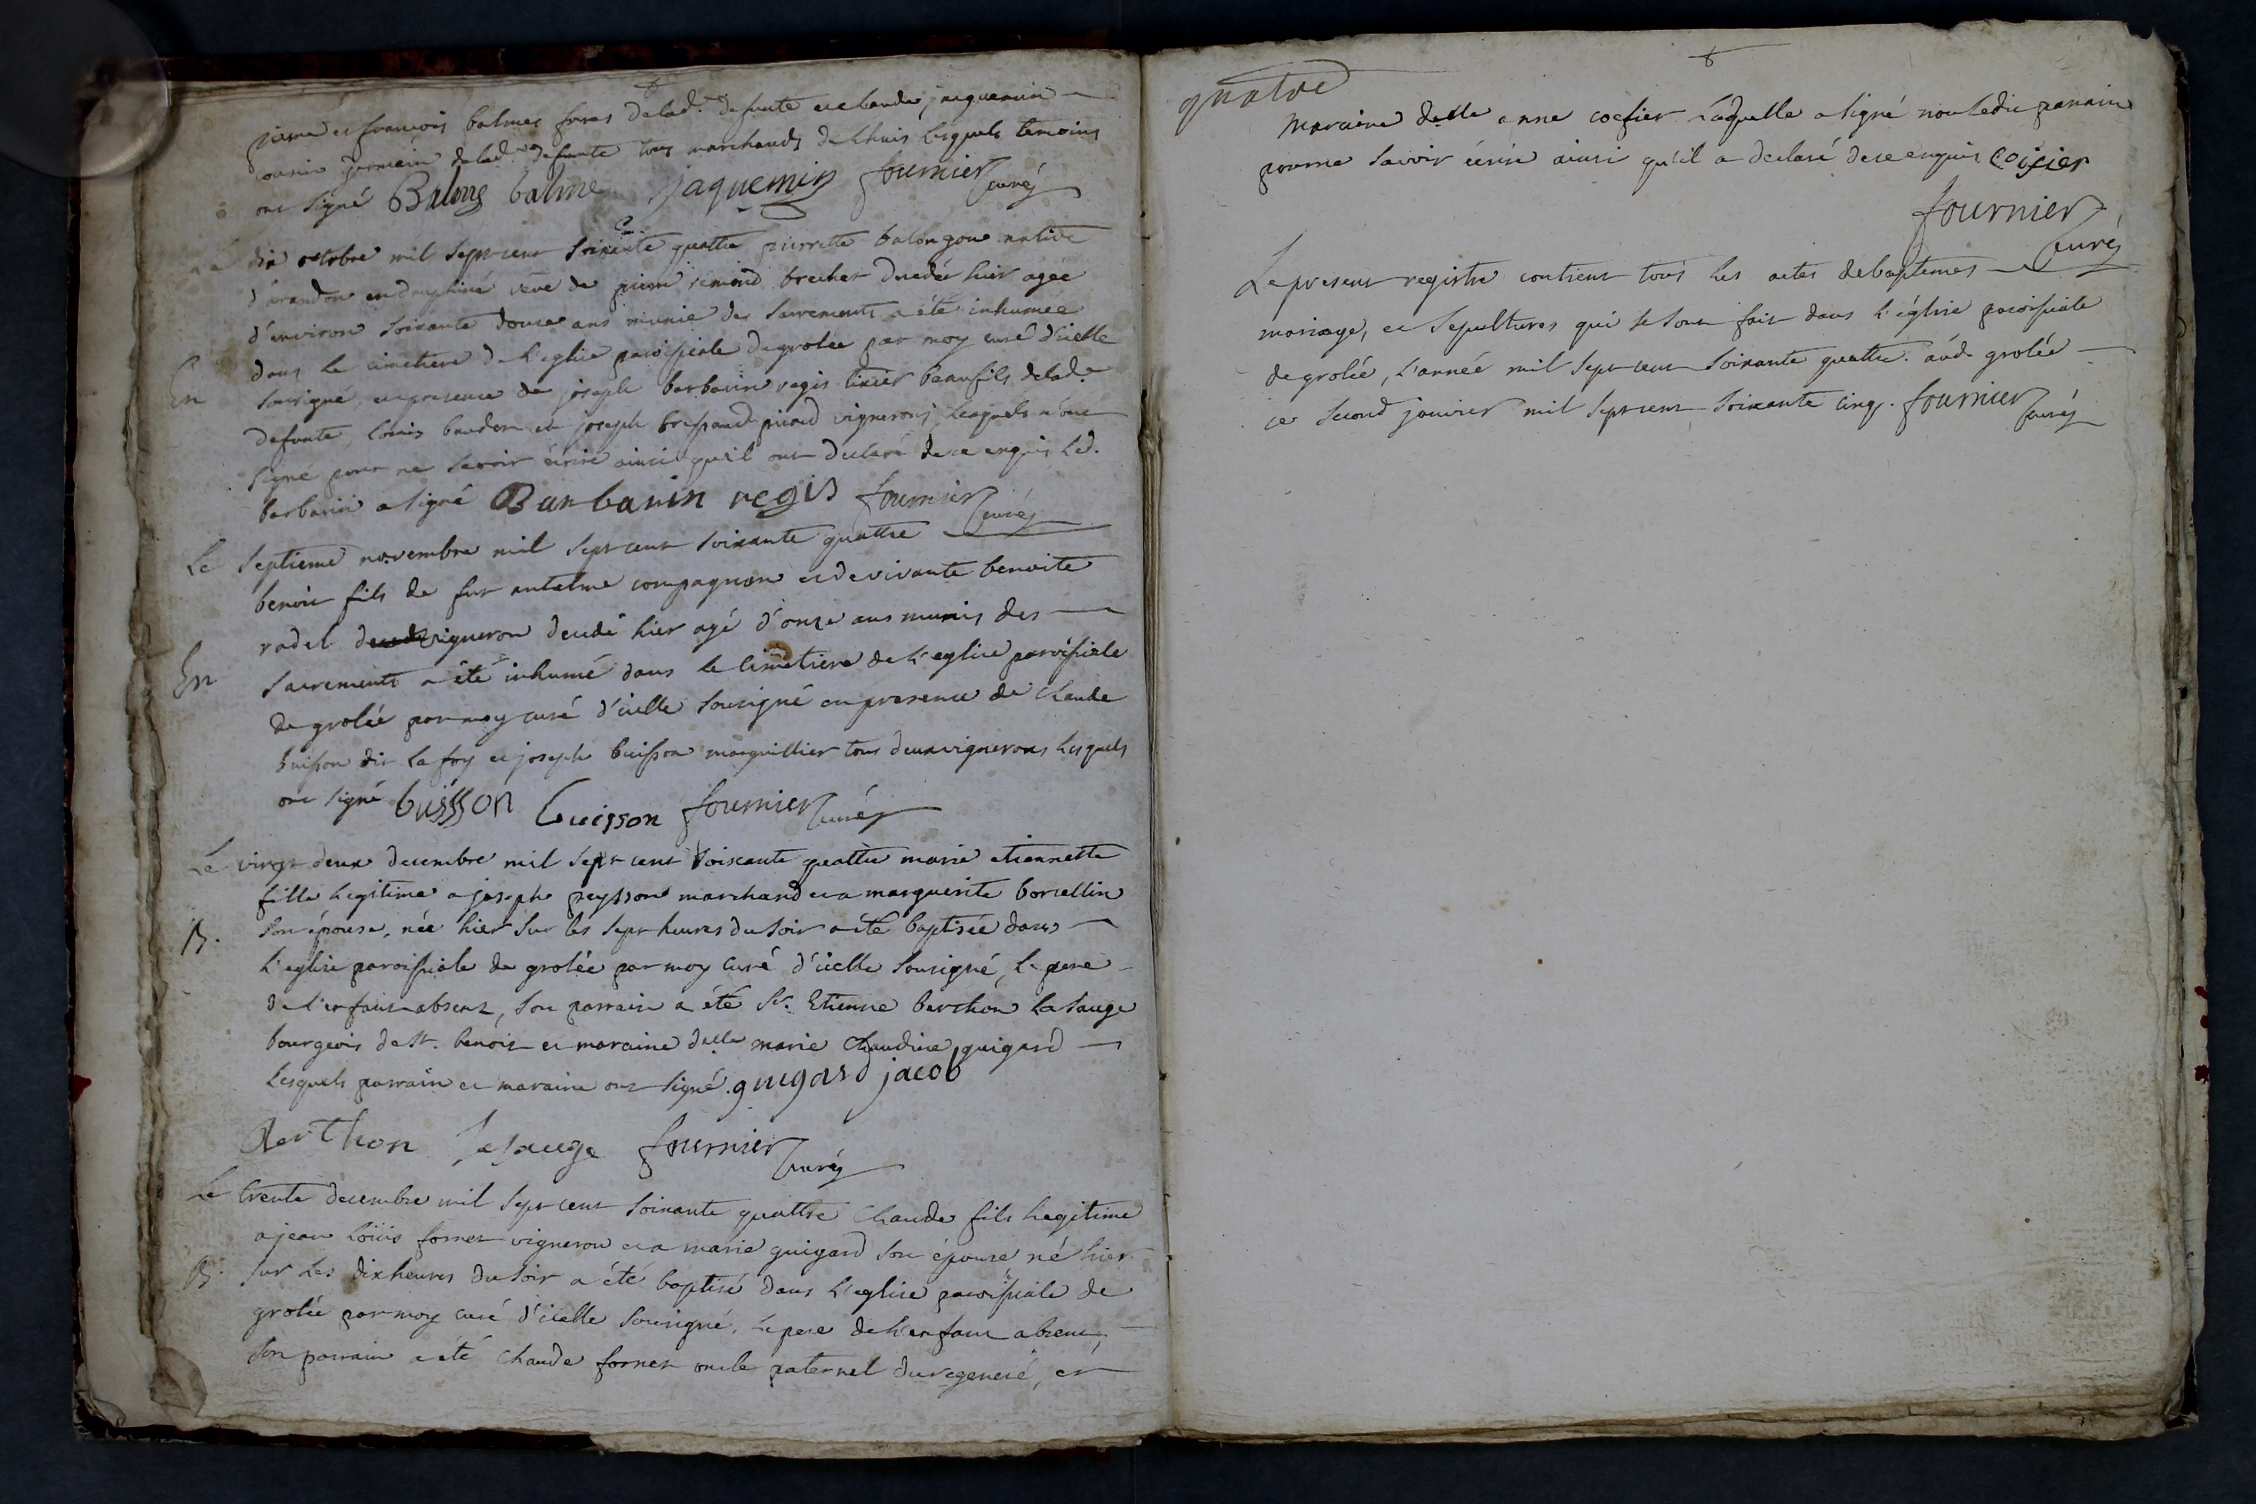 pierre et francois balmes freres de lad.e defunte et claude jacquemin
cousin germain de lad.e defunte tous marchands de lhuis lesquels temoins
ont signé Balme balme jaquemin fournier curé
Le dix octobre mil sept cent soixante quattre pierrette balongon native
d'arandon en dauphiné veuve de pierre remond brechet decedée hier agée
d'environ soixante douze ans munie des sacrements a été inhumée
dans le cimetiere de l'eglise paroissiale de grolée par moy curé d'icelle
En
sousigné, en presence de joseph barbarin regis tixier beaufils de lad.e
defunte, louis et joseph picard vignerons, lesquels n'ont
signé pour ne savoir écrire ainsi qu'il ont declaré de ce enquis led.
barbarin a signé Barbarin regis fournier curé
Le septieme novembre mil sept cent soixante quattre
benoit fils de fut antelme compagnon et de vivante benoite
radel vigneron decedé hier agé d'onze ans munis des
En
sacrements a été inhumé dans le cimetiere de l'eglise paroissiale
de grolée par moy curé d'icelle sousigné en presence de claude
buisson dit la foy et joseph buisson marguillier tous deux vignerons lesquels
ont signé buisson buisson fournier curé
Le vingt deux decembre mil sept cent soixante quattre marie etiennette
fille legitime a joseph peysson marchand et a marguerite borcellin
B.
son épouse, née hier sur les sept heures du soir a été baptisée dans
l'eglise paroissiale de grolée par moy curé d'icelle sousigné, le pere
de l'enfant absent, son parrain a été Sr. Etienne berthon la sauge
bourgeois de st. benoit et maraine delle marie claudine guigard
lesquels parrain et maraine ont signé. guigard jacob
Berthon lasauge fournier curé
Le trente decembre mil sept cent soixante quattre Claude fils legitime
a jean loüis fornet vigneron et a marie guigard son épouse, né hier
B.
sur les dix heures du soir a été baptisé dans l'eglise paroissiale de
grolée par moy curé d'icelle sousigné. le pere de l'enfant absent,
son parrain a été claude fornet oncle paternel du regeneré, et
quatre
Maraine delle anne coefier laquelle a signé non ledit parain
pour ne savoir écrire ainsi qu'il a declaré de ce enquis coifier
fournier
curé
Le present registre contient tous les actes de baptemes
mariage, et sepultures qui se sont fait dans l'église paroissiale
de grolée, l'année mil sept cent soixante quattre. aud. grolée
ce second janvier mil sept cent soixante cinq. fournier curé